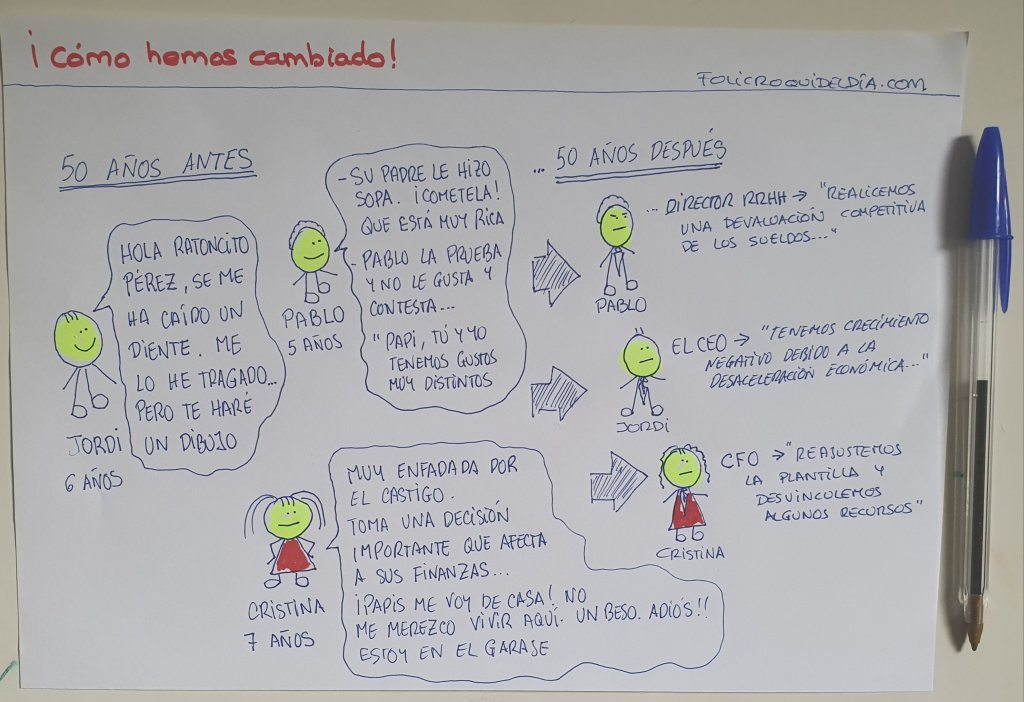 ¡Cómo hemos cambiado!
FOLICROQUIDELDÍA.COM
50 AÑOS ANTES
HOLA RATONCITO
PÉREZ, SE ME
HA CAÍDO UN
DIENTE. ME
LO HE TRAGADO...
PERO TE HARÉ
UN DIBUJO
JORDI
6 AÑOS
- SU PADRE LE HIZO
SOPA. ¡COMETELA!
QUE ESTÁ MUY RICA
- PABLO LA PRUEBA
Y NO LE GUSTA Y
CONTESTA...
"PAPI, TÚ Y YO
TENEMOS GUSTOS
MUY DISTINTOS
PABLO
5 AÑOS
MUY ENFADADA POR
EL CASTIGO.
TOMA UNA DECISIÓN
IMPORTANTE QUE AFECTA
A SUS FINANZAS...
¡PAPIS ME VOY DE CASA! NO
ME MEREZCO VIVIR AQUÍ. UN BESO. ADIÓS!!
ESTOY EN EL GARASE
CRISTINA
7 AÑOS
... 50 AÑOS DESPUÉS
... DIRECTOR RRHH → "REALICEMOS
UNA DEVALUACIÓN COMPETITIVA
DE LOS SUELDOS..."
PABLO
EL CEO → "TENEMOS CRECIMIENTO
NEGATIVO DEBIDO A LA
DESACELERACIÓN ECONÓMICA..."
JORDI
CFO → "REAJUSTEMOS
LA PLANTILLA Y
DESVINCULEMOS
ALGUNOS RECURSOS"
CRISTINA